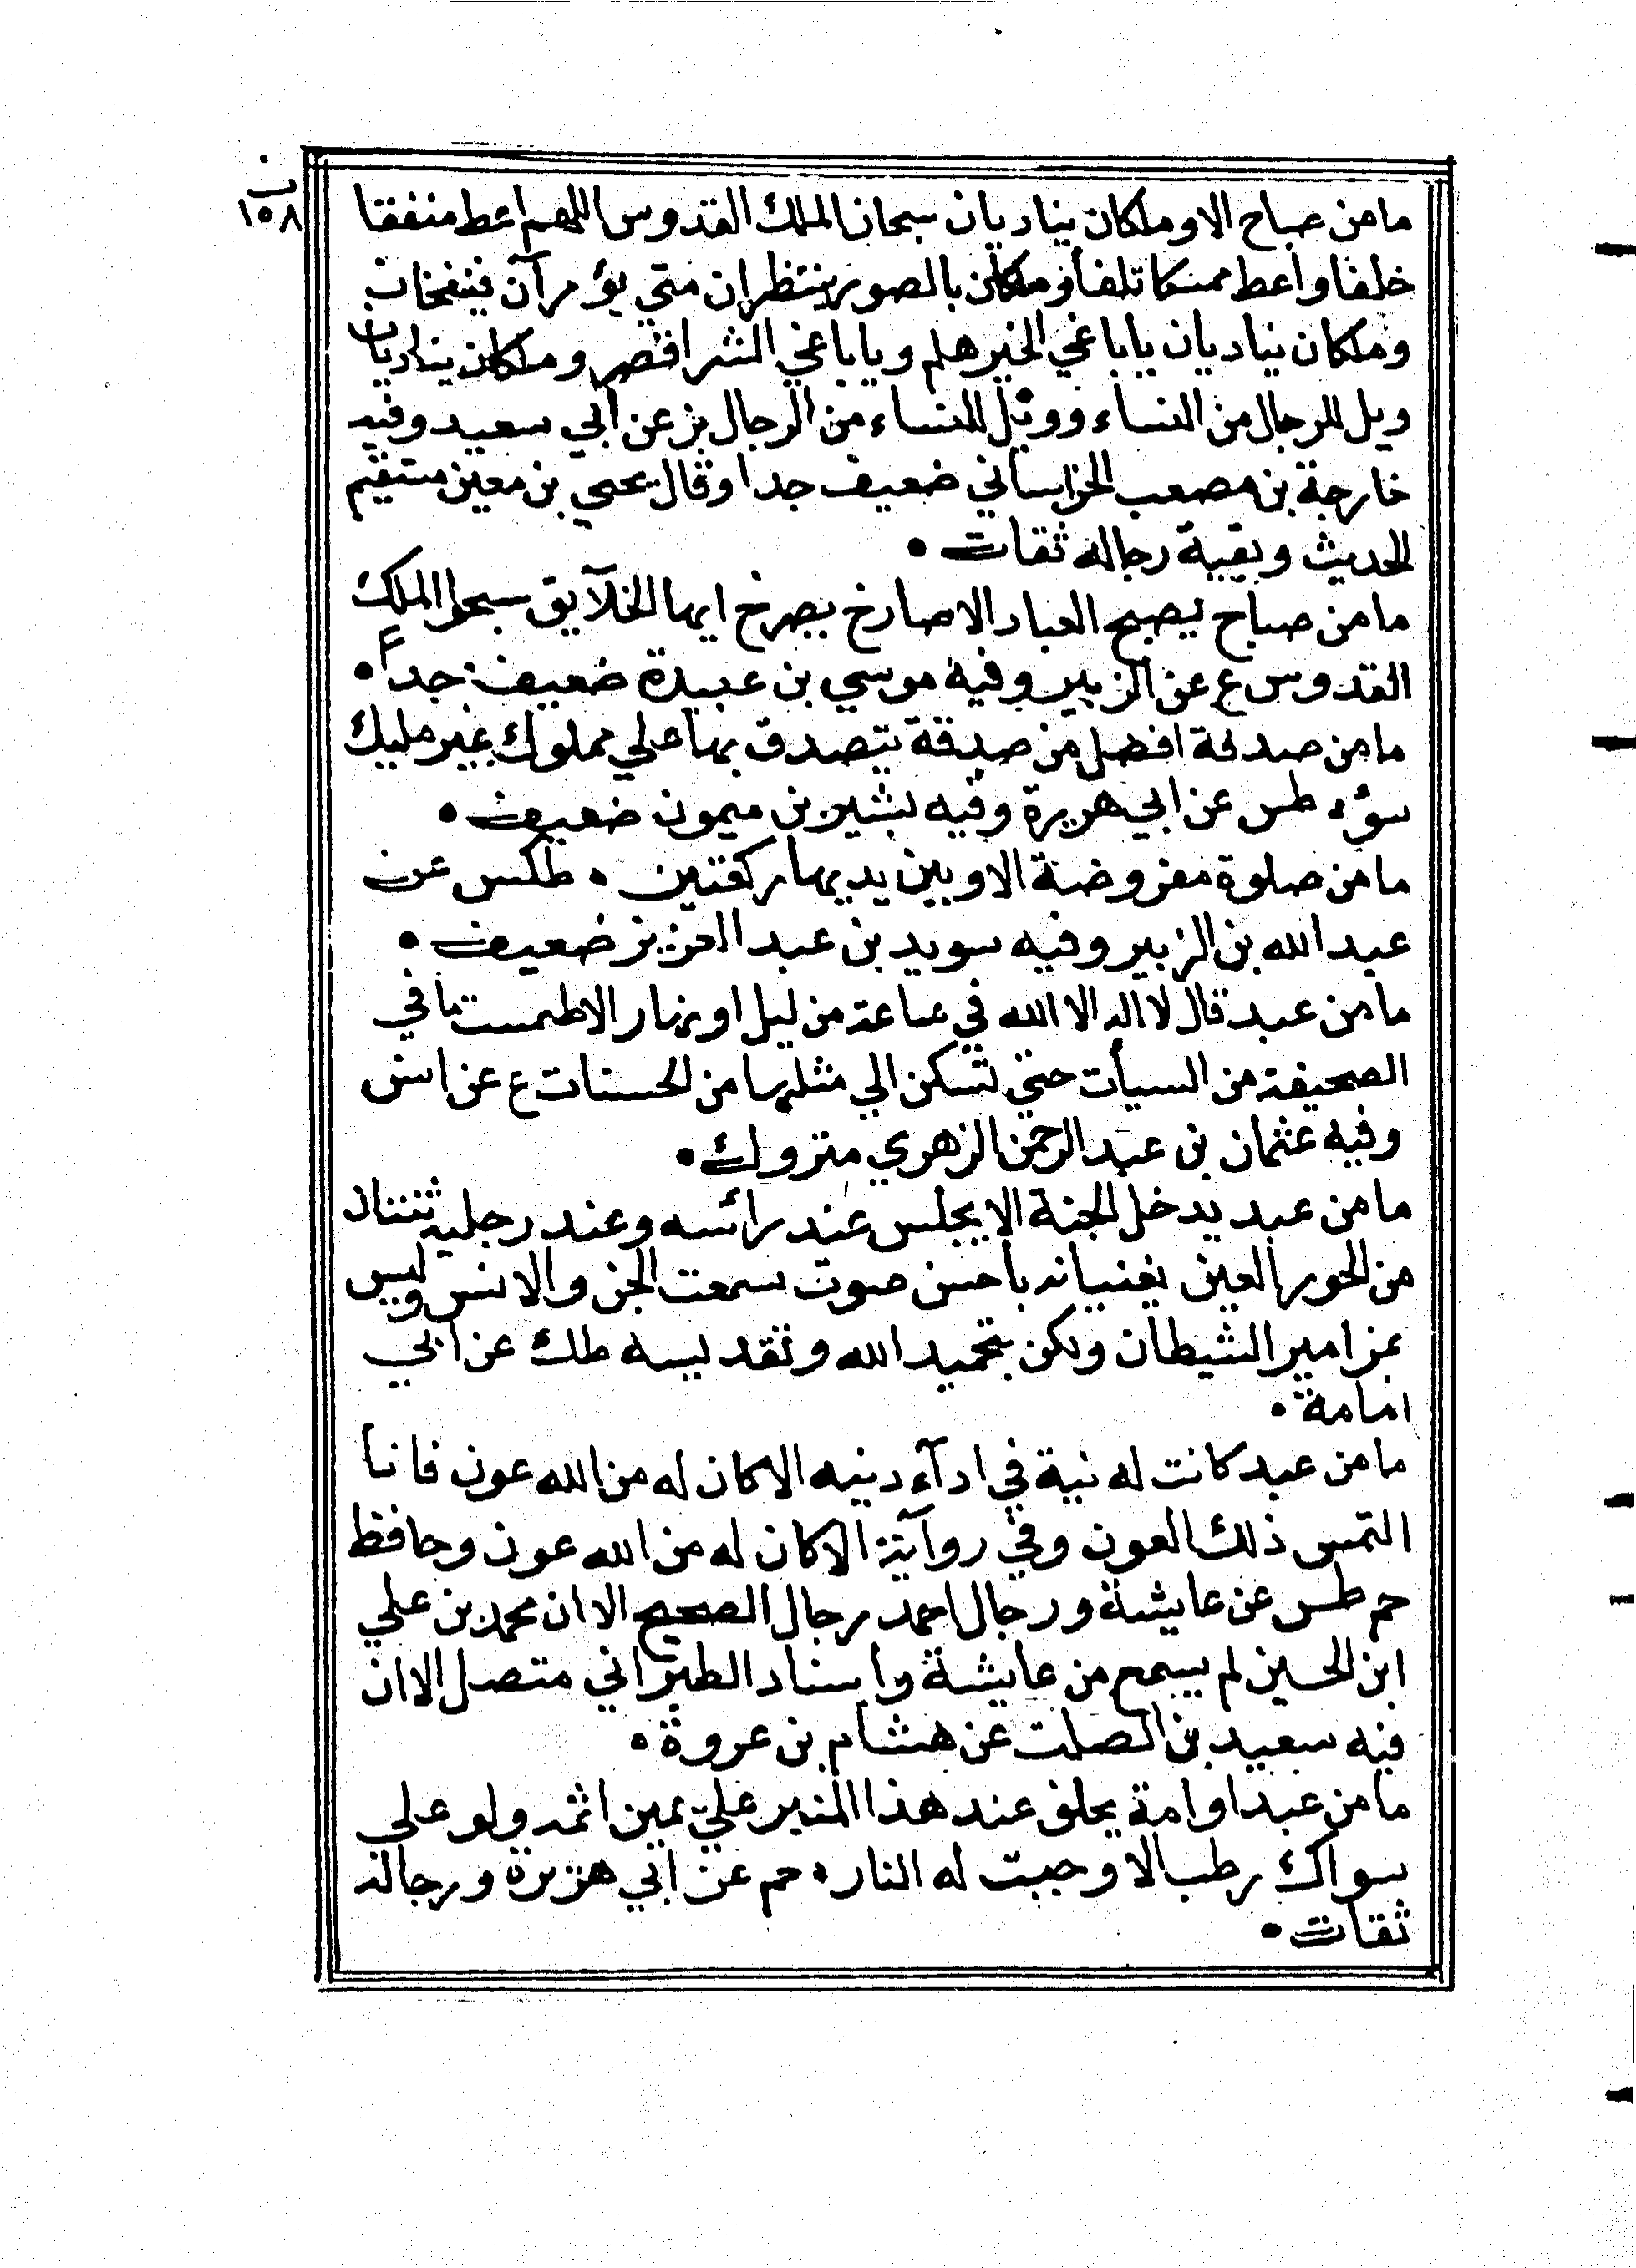 ب
١٥٨
ما من صباح الا وملكان يناديان سبحان الملك القدوس اللهم اعط منفقا
خلفا واعط ممسكا تلفا وملكان بالصور ينتظران متي يؤمرآن فينفخان
وملكان يناديان ياباغي الخير هلم وياباغي الشر اقصر وملكان يناديان
ويل للرجال من النساء وويل للنساء من الرجال بز عن ابي سعيد وفيه
خارجة بن مصعب الخراساني ضعيف جدا وقال يحيي بن معين مستقيم
الحديث وبقية رجاله ثقات •
ما من صباح يصبح العباد الا صارخ يصرخ ايها الخلآيق سبحوا الملك
القدوس ع عن الزبير وفيه موسي بن عبيدة ضعيف جدا •
ما من صدقة افضل من صدقة تتصدق بها علي مملوك عند مليك
سوء طس عن ابي هريرة وفيه بشير بن ميمون ضعيف •
ما من صلوة مفروضة الا وبين يديها ركعتين • طكس عن
عبد الله بن الزبير وفيه سويد بن عبد العزيز ضعيف •
ما من عبد قال لا اله الا الله في ساعة من ليل او نهار الا طمست ما في
الصحيفة من السيأت حتي تسكن الي مثلها من الحسنات ع عن انس
وفيه عثمان بن عبد الرحمن الزهري متروك •
ما من عبد يدخل الجنة الا يجلس عند رائسه وعند رجليه ثنتان
من الحور العين يغنيانه باحسن صوت سمعت الجن والانس وليس
بمزامير الشيطان ولكن بتحميد الله وتقديسه طك عن ابي
امامة •
ما من عبد كانت له نية في ادآء دينه الا كان له من الله عون فانا
التمس ذلك العون وفي روآية الا كان له من الله عون وحافظ
حم طس عن عايشة ورجال احمد رجال الصحيح الا ان محمد بن علي
ابن الحسين لم يسمع من عايشة واسناد الطبراني متصل الا ان
فيه سعيد بن الصلت عن هشام بن عروة •
ما من عبد او امة يحلف عند هذا المنبر علي يمين اثمة ولو علي
سواك رطب الا وجبت له النار • حم عن ابي هريرة ورجاله
ثقات •